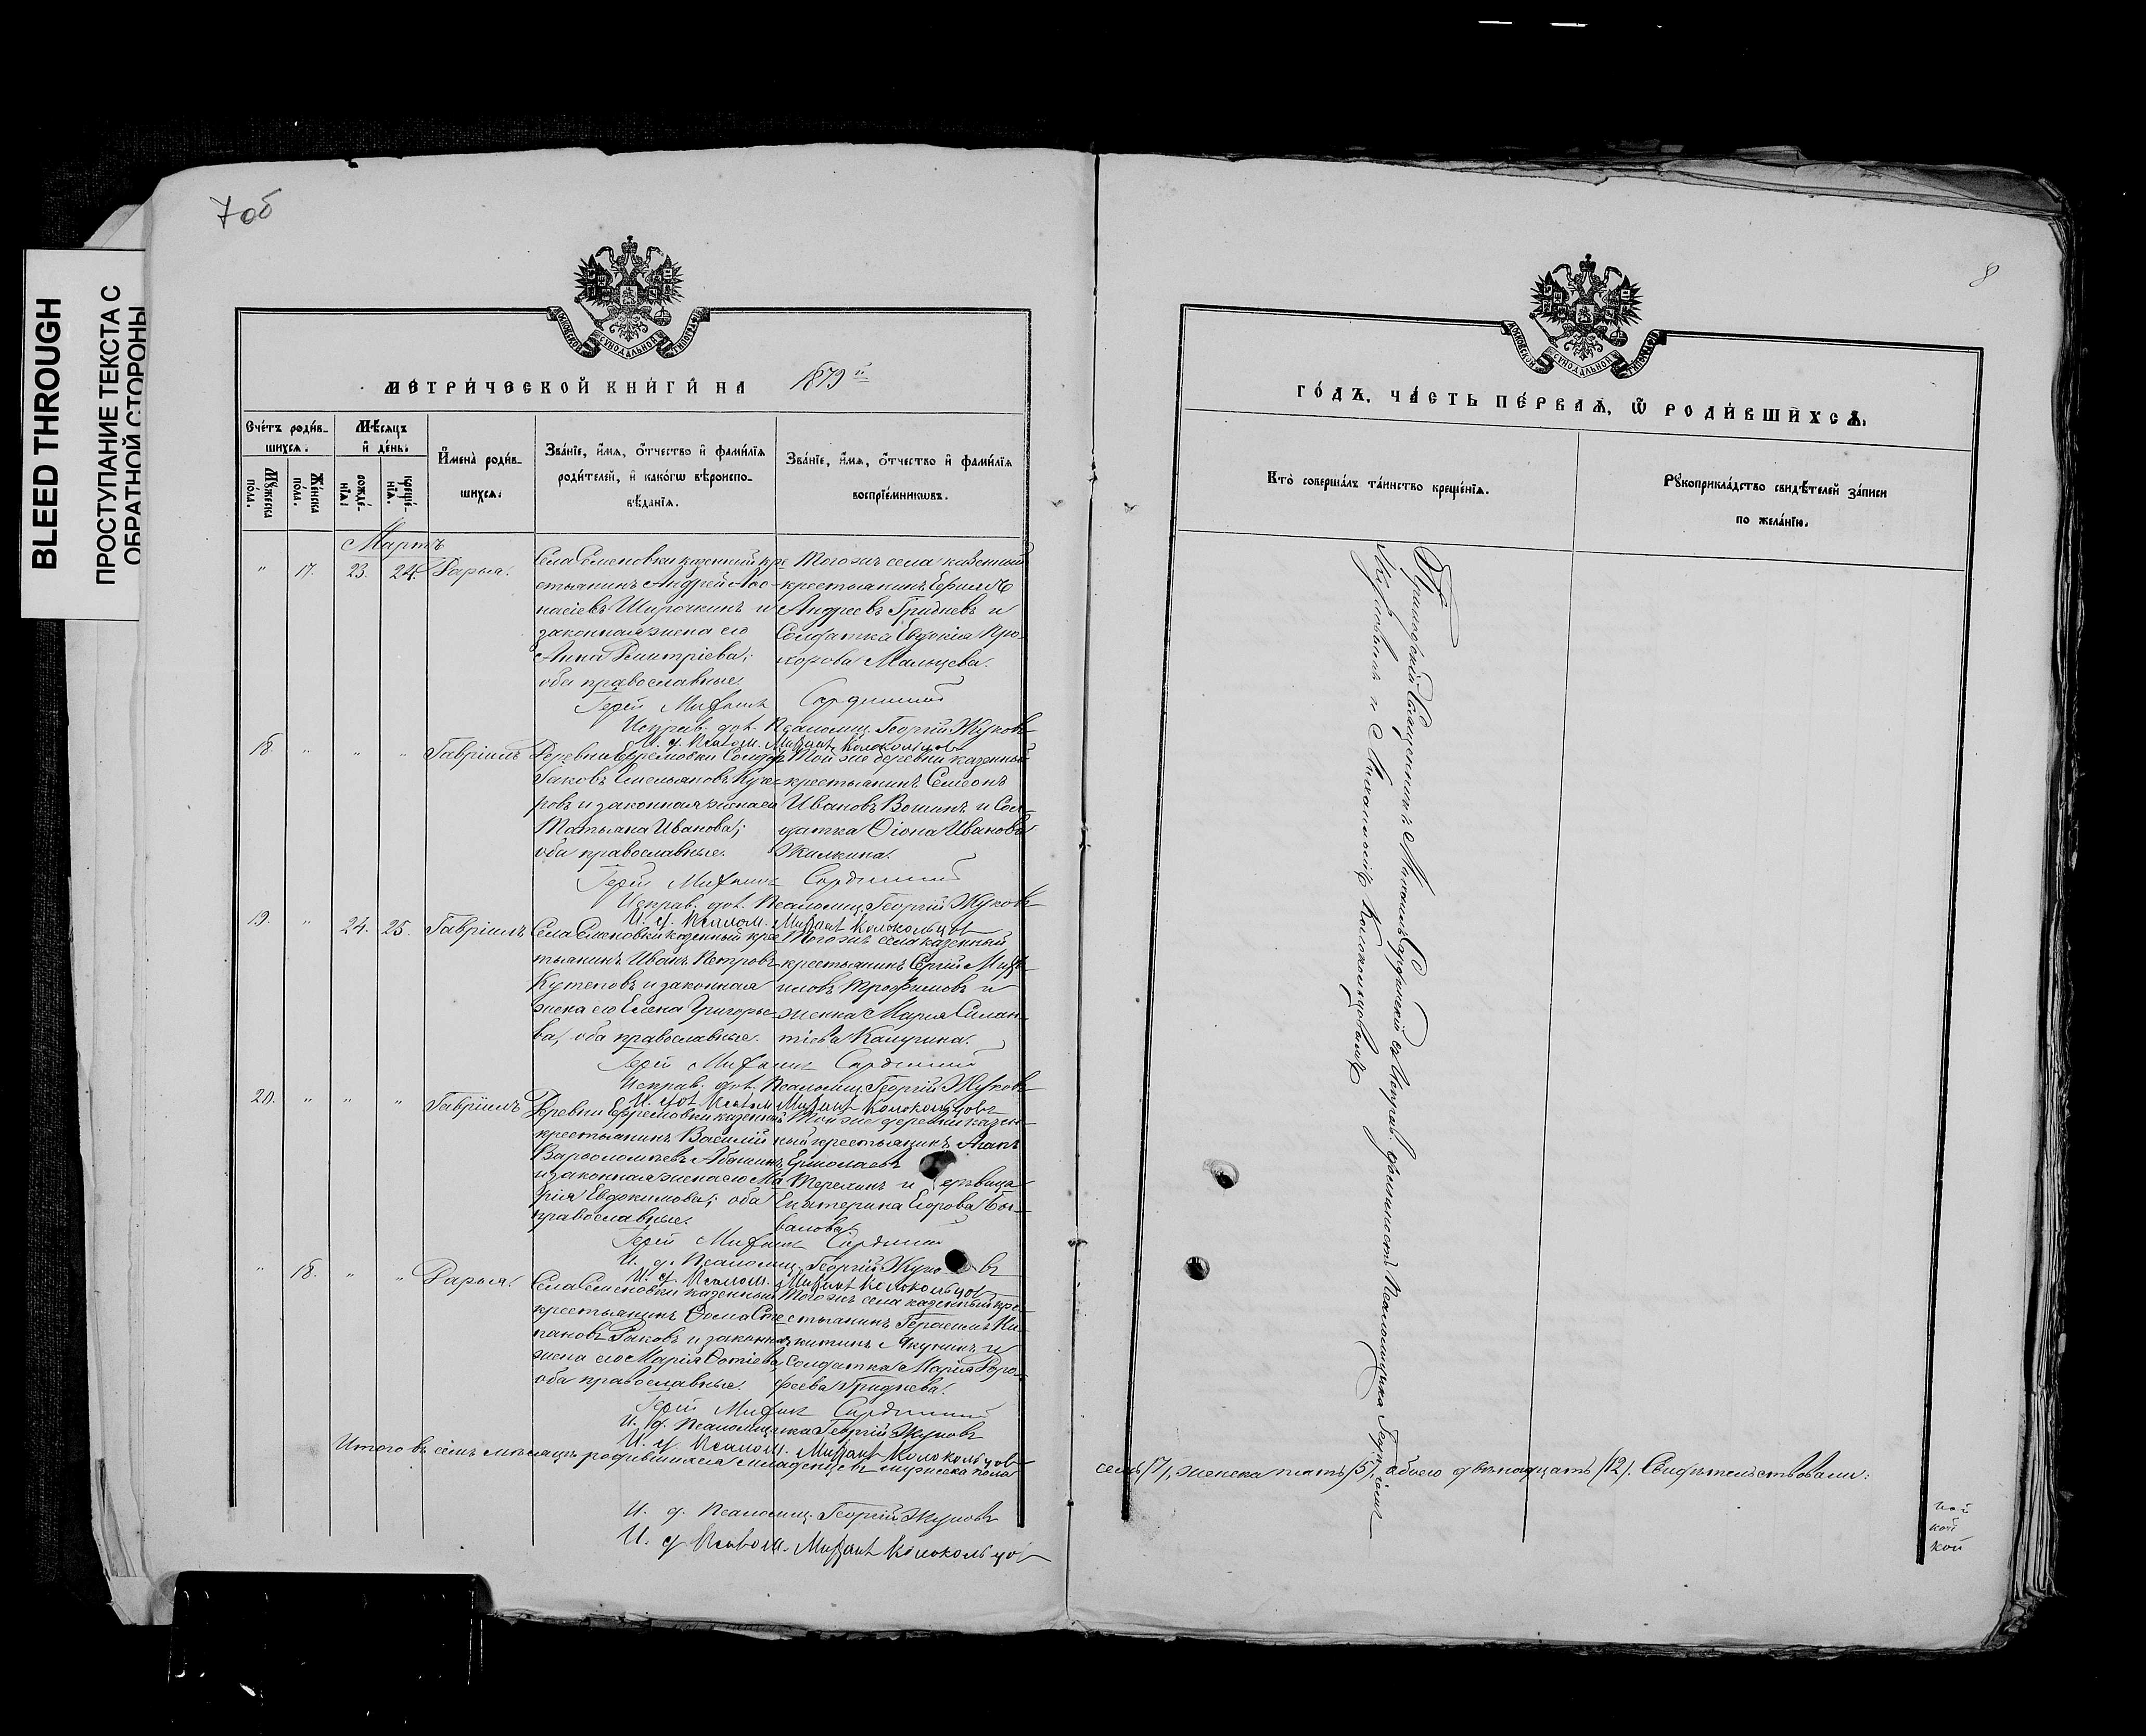 BLEED THROUGH
ПРОСТУПАНИЕ ТЕКСТА С
ОБРАТНОЙ СТОРОНЫ
7 об
8
МОСКОВСКОЙ СѴНОДАЛЬНОЙ ТИПОГРАФІИ
МЕТРИ́ЧЕСКОЙ КНИ́ГИ НА 1879й
Сче́тъ роди́в-
шихся.
Мѣсяцъ
и де́нь.
Мꙋ́жеска
по́ла.
Же́нска
по́ла.
рожде́-
нїѧ.
креще́-
нїѧ.
И҆мена̀ роди́в-
шихсѧ.
Зва́нїе, и҆́мѧ, ѻ҆́тчество и҆ фами́лїѧ
роди́телей, и҆ како́гѡ вѣроиспо-
вѣ́данїѧ.
Зва́нїе, и҆́мѧ, ѻ҆́тчество и҆ фами́лїѧ
воспрїе́мникѡвъ.
Мартъ
" 17. 23. 24. Дарья.
Села Семеновки казенный кре
стьянинъ Андрей Аѳа-
насіевъ Широчкинъ и
законная жена его
Анна Димитріева;
оба православные.
Того же села казенный
крестьянинъ Ефимъ
Андреевъ Гридневъ и
Солдатка Евдокія Про-
хорова Мальцева.
Іерей Михаилъ Сардинскій
Исправ. дол. Псаломщ. Георгій Жуковъ
И. д. Псалом. Михаилъ Колокольцовъ
18. " " " Гавріилъ
Деревни Ефремовки Солдатъ
Іаковъ Емельяновъ
ровъ и законная жена его
Татьяна Иванова;
оба православные.
Той же деревни казенный
крестьянинъ Семеонъ
Ивановъ и Сол-
датка Ѳіона Иванова
Жилкина.
Іерей Михаилъ Сардинскій
Исправ. дол. Псаломщ. Георгій Жуковъ
И. д. Псалом. Михаилъ Колокольцовъ
19. " 24. 25. Гавріилъ
Села Семеновки казенный крес
тьянинъ Иванъ Петровъ
Кутеповъ и законная
жена его Елена Григорье-
ва, оба православные.
Того же села казенный
крестьянинъ Сергій Миха-
иловъ Трофимовъ и
женка Марія Силан-
тіева Калугина.
Іерей Михаилъ Сардинскій
Исправ. дол. Псаломщ. Георгій Жуковъ
И. дол. Псалом. Михаилъ Колокольцовъ
20. " " " Гавріилъ
Деревни Ефремовки казенный
крестьянинъ Василій
Варѳоломѣевъ
и законная жена его Ма-
рія Евдокимова; оба
православные.
Той же деревни казен-
ный крестьянинъ
Ермолаевъ
Терехинъ и
Екатерина Егорова Бы-
валова.
Іерей Михаилъ Сардинскій
И. д. Псаломщ. Георгій Жуковъ
И. д. Псалом. Михаилъ Колокольцовъ
" 18. " " Дарья.
Села Семеновки казенный
крестьянинъ Ѳома Сте
пановъ Раковъ и законная
жена его Марія Ѳотіева,
оба православные.
Того же села казенный кре-
стьянинъ Герасимъ Ни-
китинъ Якунинъ и
Солдатка Марія Доро-
феева Гриднева.
Іерей Михаилъ Сардинскій
И. д. Псаломщика Георгій Жуковъ
И. д. Псалом. Михаилъ Колокольцовъ
Итого въ семъ мѣсяцѣ родившихся младенцевъ мужеска пола
И. д. Псаломщ. Георгій Жуковъ
И. д. Псалом. Михаилъ Колокольцовъ
МОСКОВСКОЙ СѴНОДАЛЬНОЙ ТИПОГРАФІИ
ГО́ДЪ, ЧА́СТЬ ПЕ́РВАѦ, Ѡ҆ РОДИ́ВШИХСѦ.
Кто̀ соверша́лъ та́инство креще́нїѧ.
Рꙋкоприкла́дство свидѣ́телей за́писи
по жела́нїю.
Приходскій Священникъ Михаилъ Сардинскій съ Исправ. должность Псаломщика Георгіемъ
Жуковымъ и Михаиломъ Колокольцовымъ
семь (7), женска пять (5), обоего двѣнадцать (12). Свидѣтельствовали: